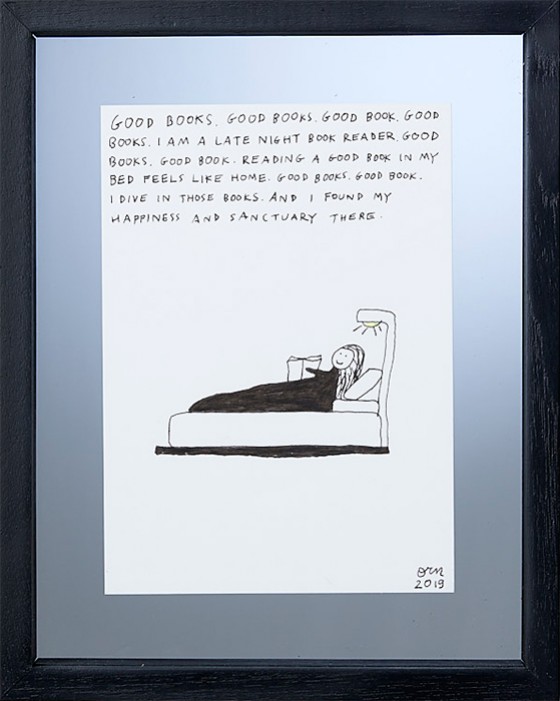 GOOD BOOKS. GOOD BOOKS. GOOD BOOK. GOOD
BOOKS. I AM A LATE NIGHT BOOK READER. GOOD
BOOKS. GOOD BOOK. READING A GOOD BOOK IN MY
BED FEELS LIKE HOME. GOOD BOOKS. GOOD BOOK.
I DIVE IN THOSE BOOKS. AND I FOUND MY
HAPPINESS AND SANCTUARY THERE.
orn
2019